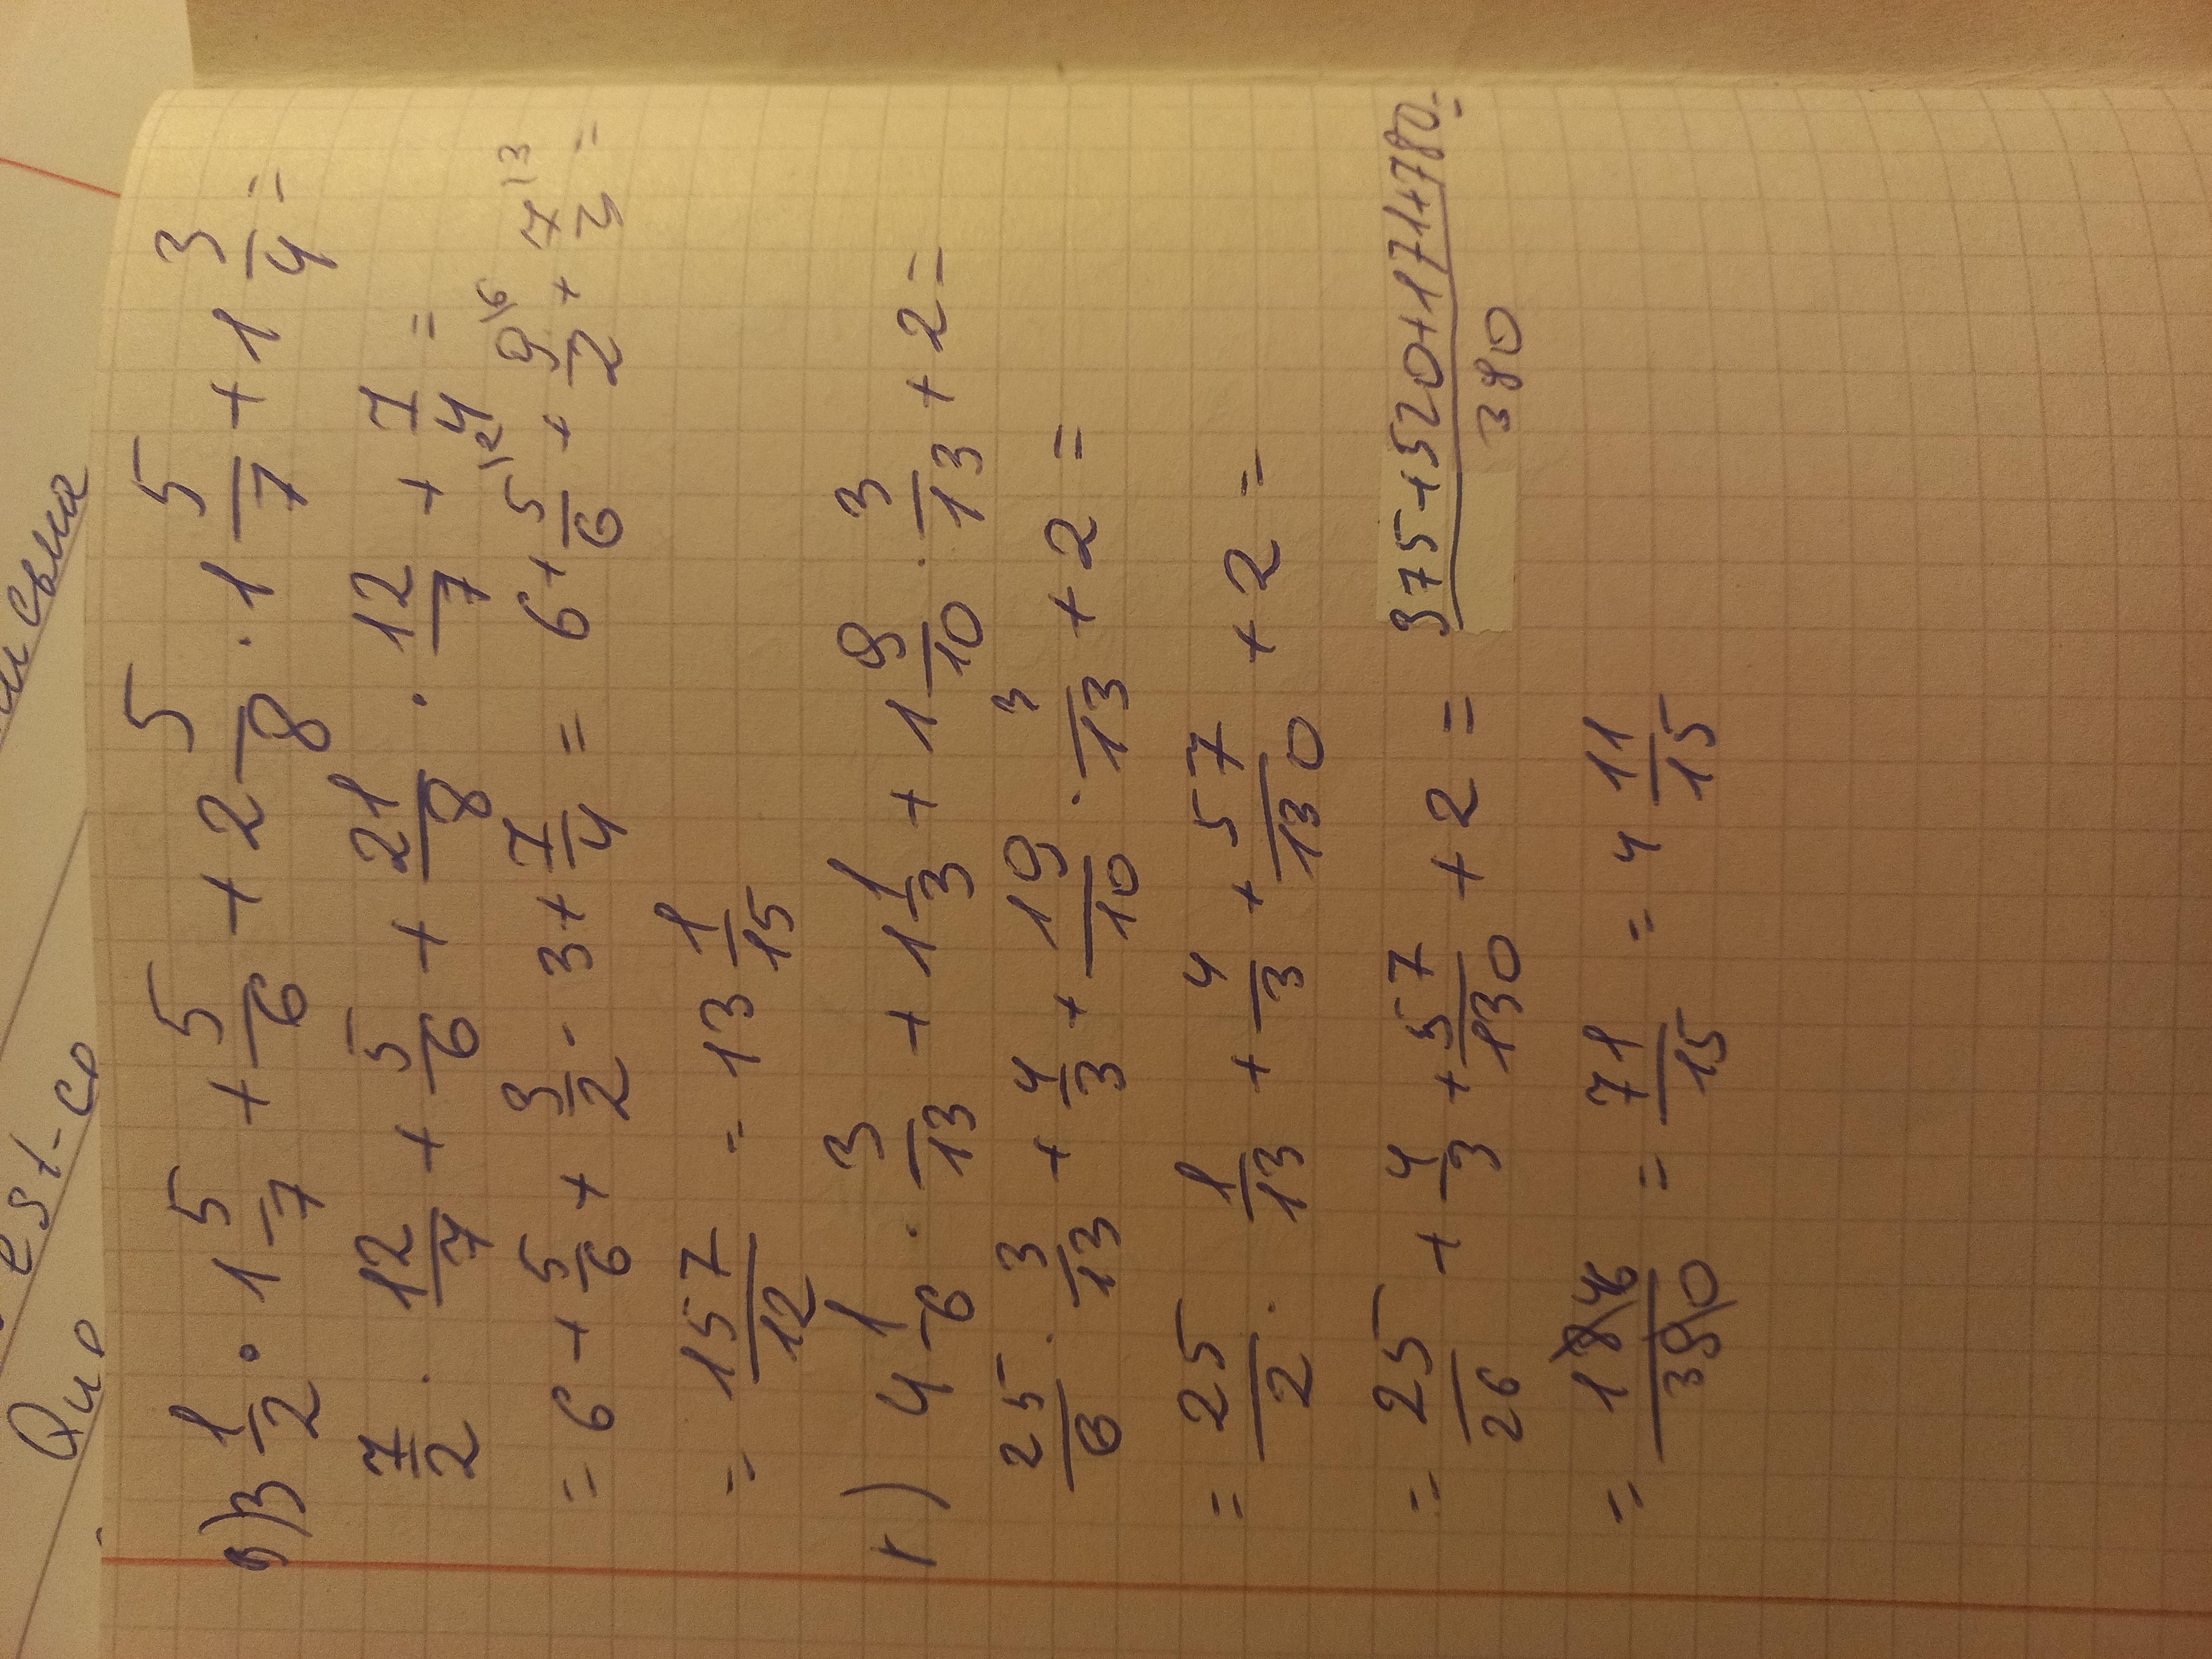 в) 3 1/2 · 1 5/7 + 5/6 + 2 5/8 · 1 5/7 + 1 3/4 =
7/2 · 12/7 + 5/6 + 21/8 · 12/7 + 7/4 =
= 6 + 5/6 + 3/2 · 3 + 7/4 = 6 + 5/6 \12 + 9/2 \6 + 7/2 \3 =
= 157/12 = 13 1/15
г) 4 1/6 · 3/13 + 1 1/3 + 1 9/10 · 3/13 + 2 =
25/6 · 3/13 + 4/3 + 19/10 · 3/13 + 2 =
= 25/2 · 1/13 + 4/3 + 57/130 + 2 =
= 25/26 + 4/3 + 57/130 + 2 = 375+520+171+780/380 =
= 1846/390 = 71/15 = 4 11/15